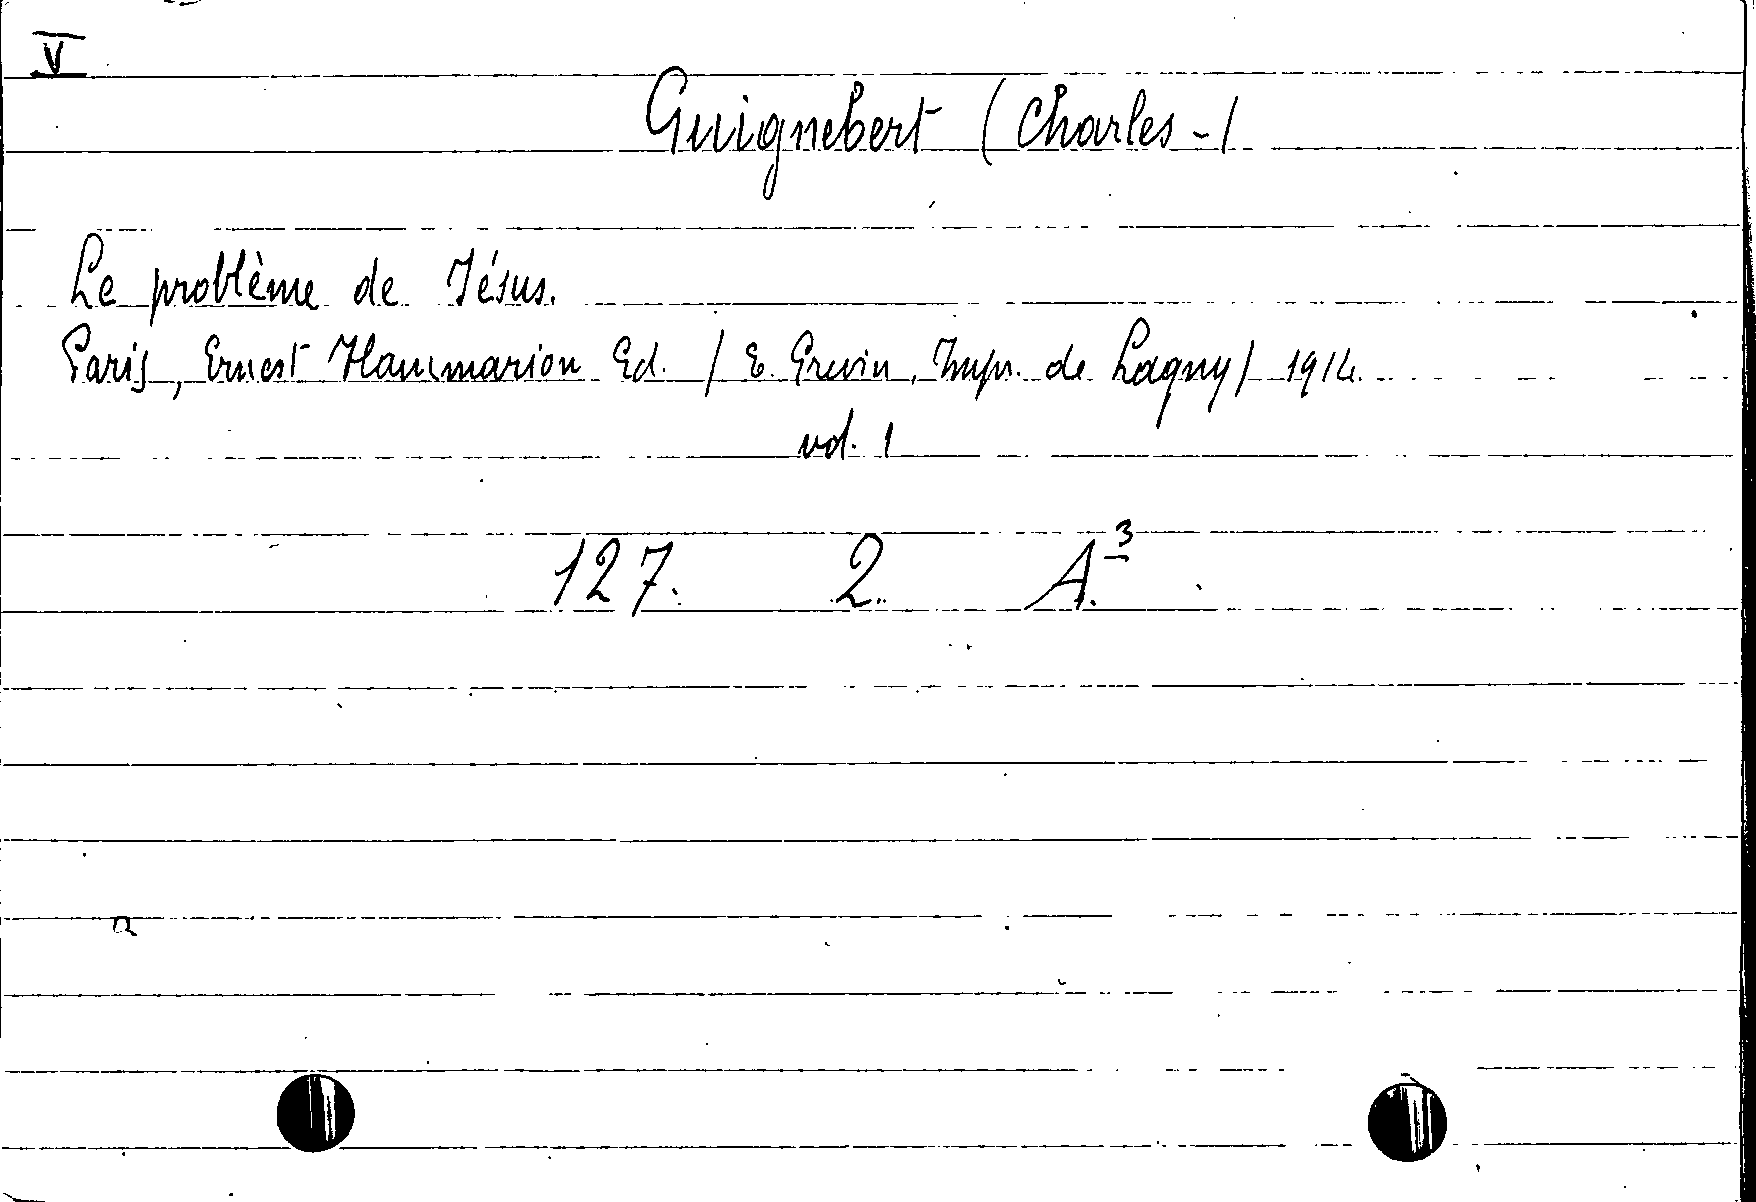 V
Guignebert (Charles-)
Le problème de Jésus.
Paris, Ernest Flammarion Ed. / E. Grevin, Impr. de Lagny / 1914.
vol. 1
127. 2. A.³